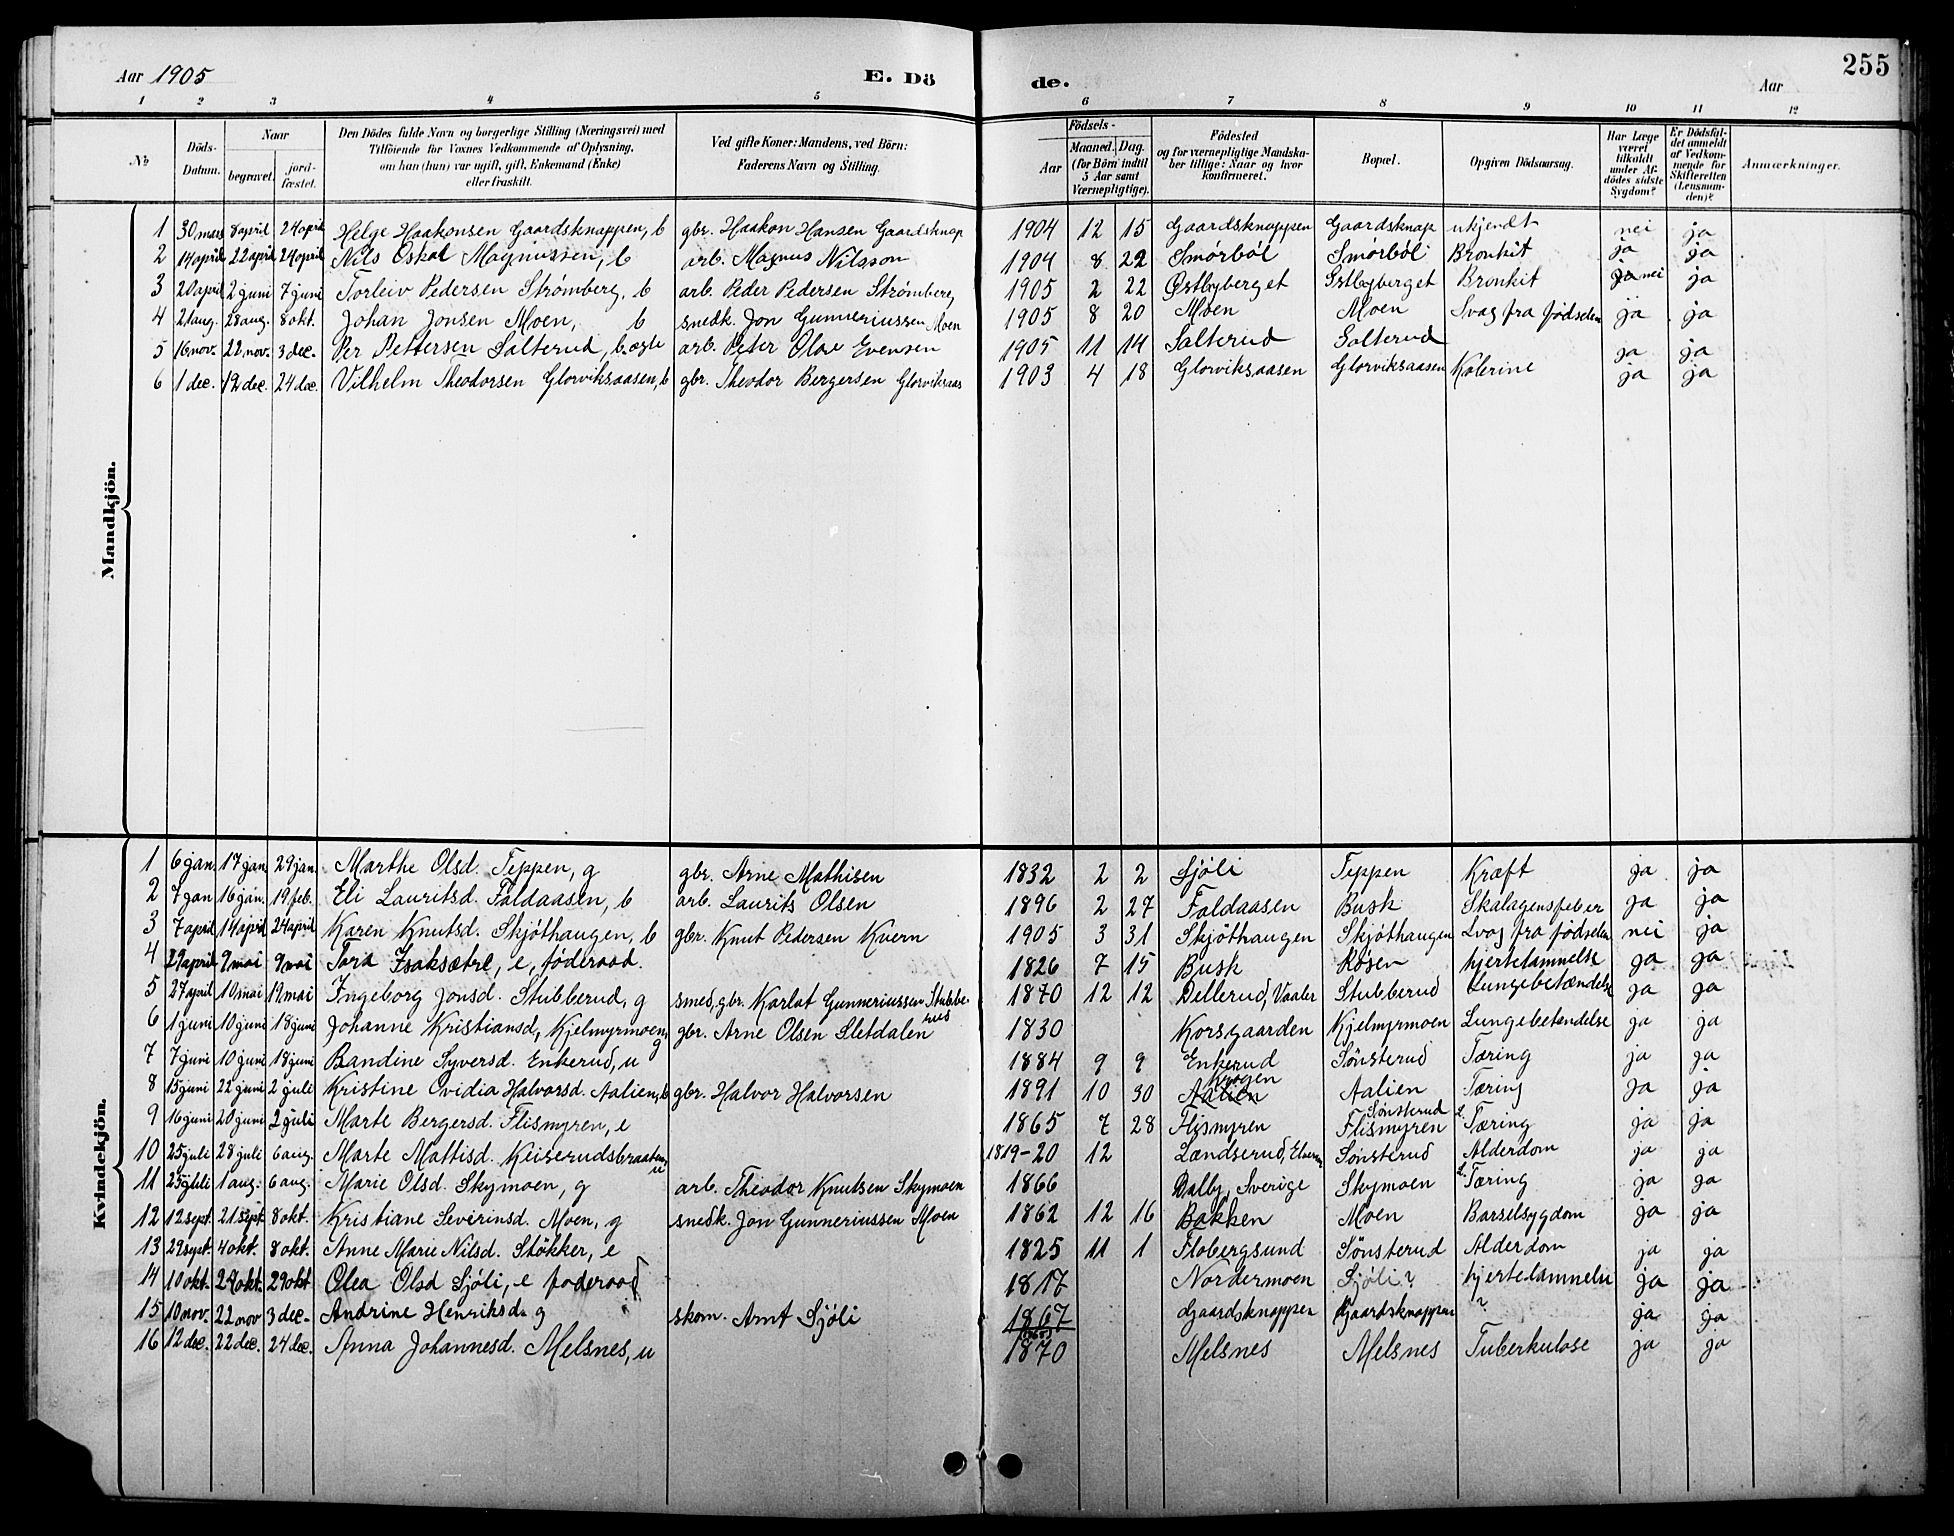 255
Aar 1905 E. Dö de. Aar
1 2 3 4 5 6 7 8 9 10 11 12
No Döds-Datum. Naar begravet. jordfæstet. Den Dödes fulde Navn og borgerlige Stilling (Næringsvei) med Tilföiende for Voxnes Vedkommende af Oplysning, om han (hun) var ugift, gift, Enkemand (Enke) eller fraskilt. Ved gifte Koner: Mandens, ved Börn: Faderens Navn og Stilling. Födsels- Aar Maaned. Dag. (for Börn indtil 5 Aar samt Værnepligtige). Födested og for værnepligtige Mandskaber tillige: Naar og hvor konfirmeret. Bopæl. Opgiven Dödsaarsag. Har Læge været tilkaldt under Afdödes sidste Sygdom? Er Dödsfaldet anmeldt af Vedkommende for Skifteretten (Lensmanden)? Anmærkninger.
Mandkjön.
1 30 mars 8 april 24 april Helge Haakonsen Gaardsknappen, b gbr. Haakon Hansen Gaardsknap 1904 12 15 Gaardsknappen Gaardsknap ukjendt nei ja
2 14 april 22 april 24 april Nils Oskal Magnussen, b arb. Magnus Nilsson 1904 8 22 Smörböl Smörböl Bronkit ja ja
3 20 april 2 juni 7 juni Torleiv Pedersen Strømberg, b arb. Peder Pedersen Strømberg 1905 2 22 Østbyberget Østbyberget Bronkit ja nei ja
4 21 aug. 28 aug. 8 okt. Johan Jonsen Moen, b snedk. Jon Gunneriussen Moen 1905 8 20 Moen Moen Svag fra fødselen ja ja
5 16 nov. 22 nov. 3 dec. Per Pettersen Salterud, b. ægte arb. Peter Olav Evensen 1905 11 14 Salterud Salterud ja ja
6 1 dec. 12 dec. 24 dec. Vilhelm Theodorsen Glorviksaasen, b gbr. Theodor Bergersen Glorviksaas 1903 4 18 Glorviksaasen Glorviksaasen Kolerine ja ja
Kvindekjön.
1 6 jan. 17 jan. 29 jan. Marthe Olsd. Teppen, g gbr. Arne Mathisen 1832 2 2 Sjöli Teppen Kræft ja ja
2 7 jan 16 jan. 19 feb. Eli Lauritsd. Faldaasen, b arb. Laurits Olsen 1896 2 27 Faldaasen Busk Skalagensfeber ja ja
3 7 april 14 april 24 april Karen Knutsd. Skjöthaugen, b gbr. Knut Pedersen Kvern 1905 3 31 Skjöthaugen Skjöthaugen Svag fra fødselen nei ja
4 29 april 9 mai 9 mai Tora Isaksætre, e, føderaad. 1826 7 15 Busk Røsen hjertelammelse ja ja
5 27 april 10 mai 19 mai Ingeborg Jonsd. Stubberud, g smed, gbr. Karlot Gunneriussen Stubberud 1870 12 12 Dellerud, Vaaler Stubberud Lungebetændelse ja ja
6 1 juni 10 juni 18 juni Johanne Kristiansd, Kjelmyrmoen, g gbr. Arne Olsen Sletdalen 1830 Korsgaarden Kjelmyrmoen Lungebetændelse ja ja
7 7 juni 10 juni 18 juni Bandine Syversd. Enkerud, u 1884 9 9 Enkerud Sönsterud Tæring ja ja
8 15 juni 22 juni 2 juli Kristine Ovidia Halvorsd. Aalien, b gbr. Halvor Halvorsen 1891 10 30 Krogen Aalien Aalien Tæring ja ja
9 16 juni 20 juni 2 juli Marte Bergersd. Flismyren, e 1865 7 28 Flismyren Sönsterud Flismyren Tæring ja ja
10 25 juli 28 juli 6 aug. Marte Mattisd. Keiserudsbraaten, u 1819-20 12 Lændserud, Elverum Sönsterud Alderdom ja ja
11 25 juli 1 aug. 6 aug. Marie Olsd. Skymoen, g arb. Theodor Knutsen Skymoen 1866 Dalby, Sverige Skymoen Tæring ja ja
12 12 sept. 21 sept. 8 okt. Kristiane Severinsd. Moen, g snedk. Jon Gunneriussen Moen 1862 12 16 Bakken Moen Barselsygdom ja ja
13 29 sept. 4 okt. 8 okt. Anne Marie Nilsd. Stökker, e 1825 11 1 Flobergsund Sönsterud Alderdom ja ja
14 10 okt. 24 okt. 29 okt Olea Olsd Sjöli, e foderaad 1817 Nordermoen Sjöli? hjertelammelse ja ja
15 10 nov. 22 nov 3 dec. Andrine Henriksd. g skom. Arnt Sjöli 1867 Gaardsknappen Gaardsknappen ? ja ja
16 12 dec. 22 dec. 24 dec. Anna Johannesd. Melsnes, u 1870 Melsnes Melsnes Tuberkulose ja ja